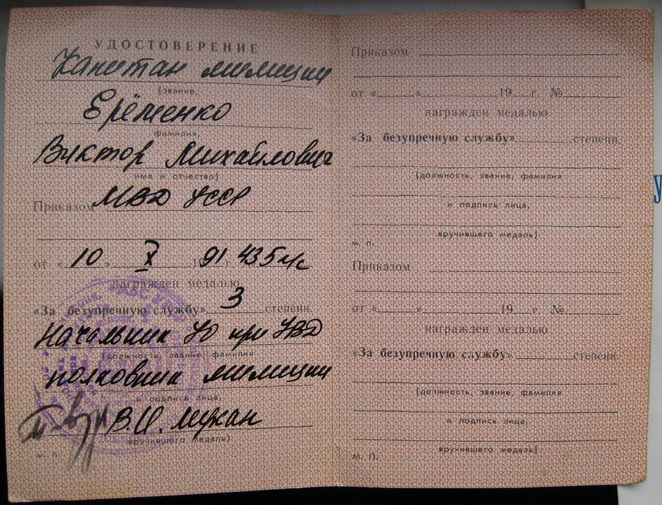 УДОСТОВЕРЕНИЕ
Капитан милиции
(звание,
Ерёменко
фамилия,
Виктор Михайлович
имя и отчество)
Приказом МВД УССР
от «10» X 1991 г. 435 л/с
награжден медалью
«За безупречную службу» 3 степени.
Начальник УО при УВД
(должность, звание, фамилия
полковник милиции
и подпись лица,
В.И. Мукан
вручившего медаль)
м. п.
Приказом
от « » 19 г. №
награжден медалью
«За безупречную службу» степени.
(должность, звание, фамилия
и подпись лица,
вручившего медаль)
м. п.
Приказом
от « » 19 г. №
награжден медалью
«За безупречную службу» степени.
(должность, звание, фамилия
и подпись лица,
вручившего медаль)
м. п.